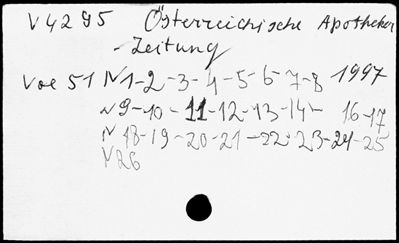 V4295 Österreichische Apotheker
-Zeitung
Vol 51 N1-2-3-4-5-6-7-8 1997
N9-10-11-12-13-14- 16-17
N18-19-20-21-22-23-24-25
N26